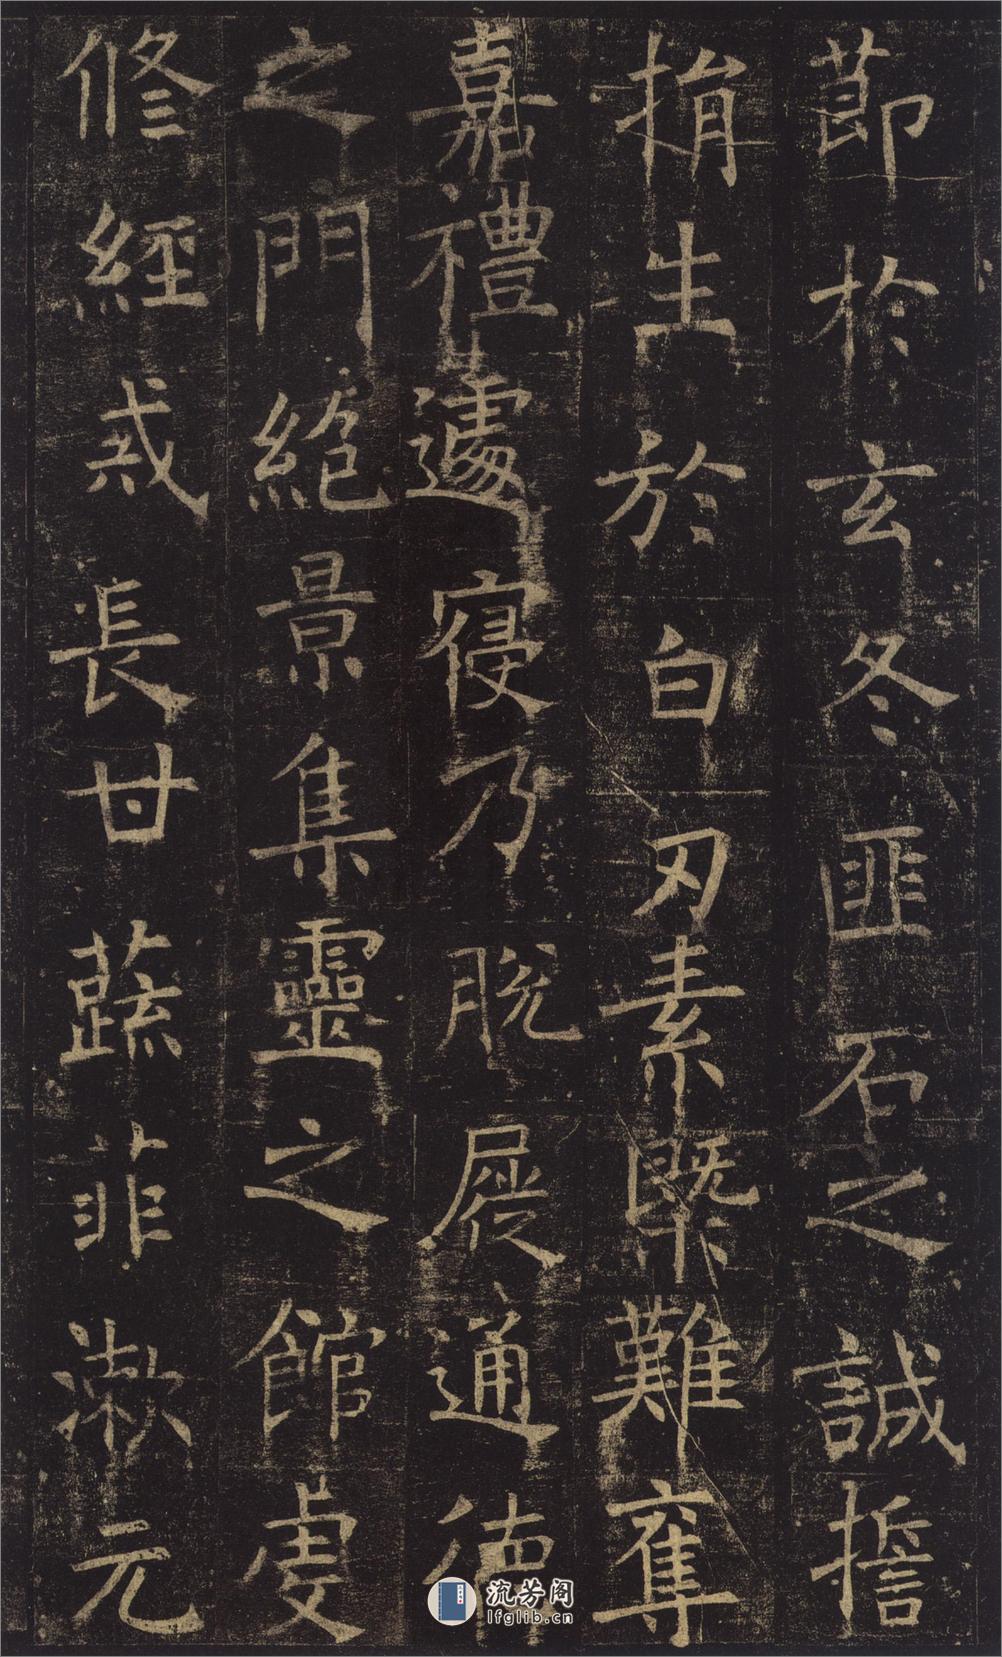 節於玄冬匪石之誠擔
捐生於白刃素概難奪
嘉禮遽寢乃脫屣通德
之門絕景集靈之館虔
修經戒長甘蔬菲漱元
流芳阁
lfglib.cn